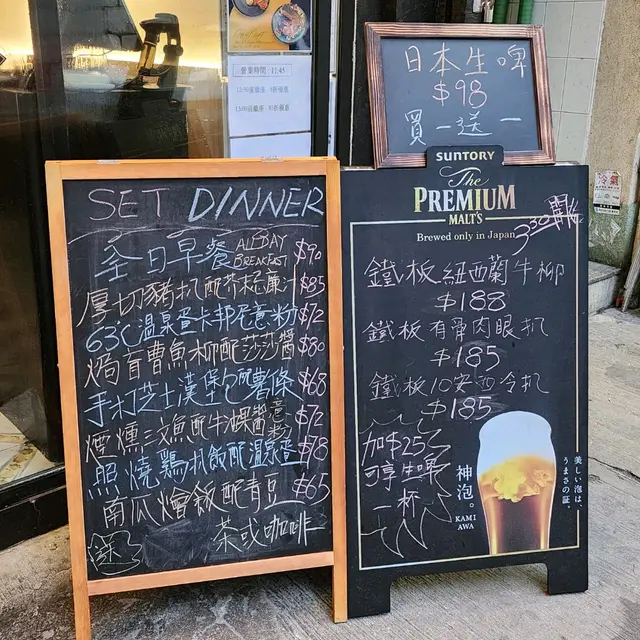 日本生啤
$98
買一送一
營業時間:11:45
SET DINNER
全日早餐 ALL DAY BREAKFAST $90
厚切豬扒配芥末薯 $85
63℃溫泉蛋卡邦尼意粉 $72
焗盲曹魚柳配莎莎醬 $80
手打芝士漢堡包配薯條 $68
煙燻三文魚配牛油果醬意粉 $72
照燒鷄扒飯配溫泉蛋 $78
南瓜燴飯配青豆 $65
送 茶或咖啡
SUNTORY
The
PREMIUM
MALT'S
Brewed only in Japan
3:30開始
鐵板紐西蘭牛柳
$188
鐵板有骨肉眼扒
$185
鐵板10安西冷扒
$185
加$25
可享生啤
一杯
神泡。
KAMI
AWA
美しい泡は、
うまさの証。